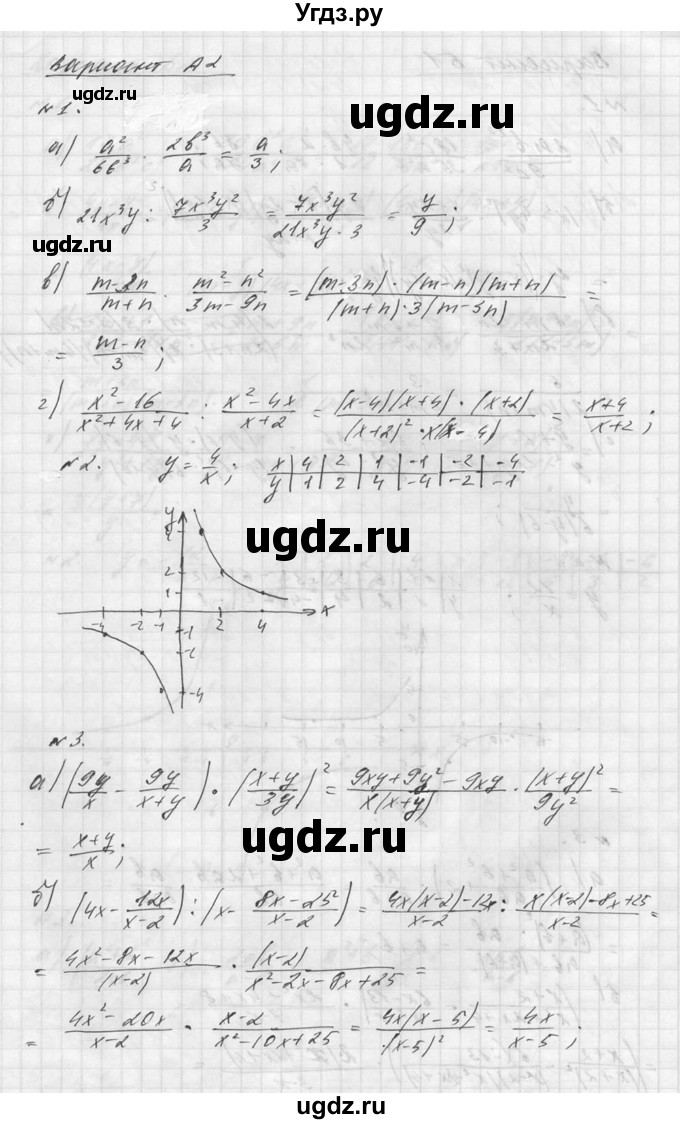 Угдз.ру
Вариант А2
ugdz.ru
ugdz.ru
№1.
а) a²/6b³ · 2b³/a = a/3;
б) 21x³y : 7x³y²/3 = 7x³y²/21x³y·3 = y/9;
ugdz.ru
в) m-2n/m+n · m²-n²/3m-9n = (m-3n)·(m-n)(m+n)/(m+n)·3(m-3n) =
= m-n/3;
г) x²-16/x²+4x+4 : x²-4x/x+2 = (x-4)(x+4)·(x+2)/(x+2)²·x(x-4) = x+4/x+2;
№2. y = 4/x; x | 4 | 2 | 1 | -1 | -2 | -4
y | 1 | 2 | 4 | -4 | -2 | -1
ugdz.ru
y
4
2
1
-4 -2 -1 2 4 x
-1
-2
-4
№3.
а) (9y/x - 9y/x+y) · (x+y/3y)² = 9xy+9y²-9xy/x(x+y) · (x+y)²/9y² =
ugdz.ru
= x+y/x;
б) (4x - 12x/x-2) : (x - 8x-25/x-2) = 4x(x-2)-12x/x-2 : x(x-2)-8x+25/x-2 =
= 4x²-8x-12x/(x-2) · (x-2)/x²-2x-8x+25 =
= 4x²-20x/x-2 · x-2/x²-10x+25 = 4x(x-5)/(x-5)² = 4x/x-5;
ugdz.ru